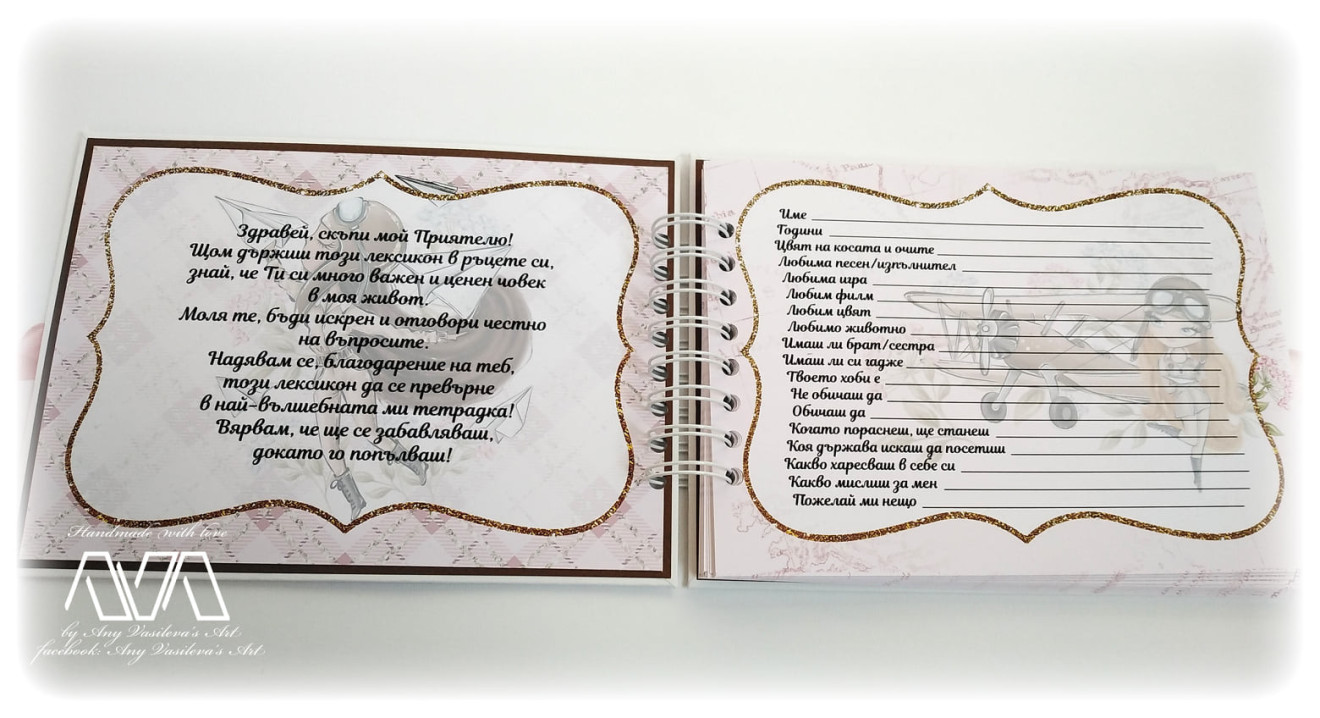 Здравей, скъпи мой Приятелю!
Щом държиш този лексикон в ръцете си,
знай, че Ти си много важен и ценен човек
в моя живот.
Моля те, бъди искрен и отговори честно
на въпросите.
Надявам се, благодарение на теб,
този лексикон да се превърне
в най-вълшебната ми тетрадка!
Вярвам, че ще се забавляваш,
докато го попълваш!
Име
Години
Цвят на косата и очите
Любима песен/изпълнител
Любима игра
Любим филм
Любим цвят
Любимо животно
Имаш ли брат/сестра
Имаш ли си гадже
Твоето хоби е
Не обичаш да
Обичаш да
Когато пораснеш, ще станеш
Коя държава искаш да посетиш
Какво харесваш в себе си
Какво мислиш за мен
Пожелай ми нещо
Handmade with love
AVA
by Any Vasileva's Art
facebook: Any Vasileva's Art